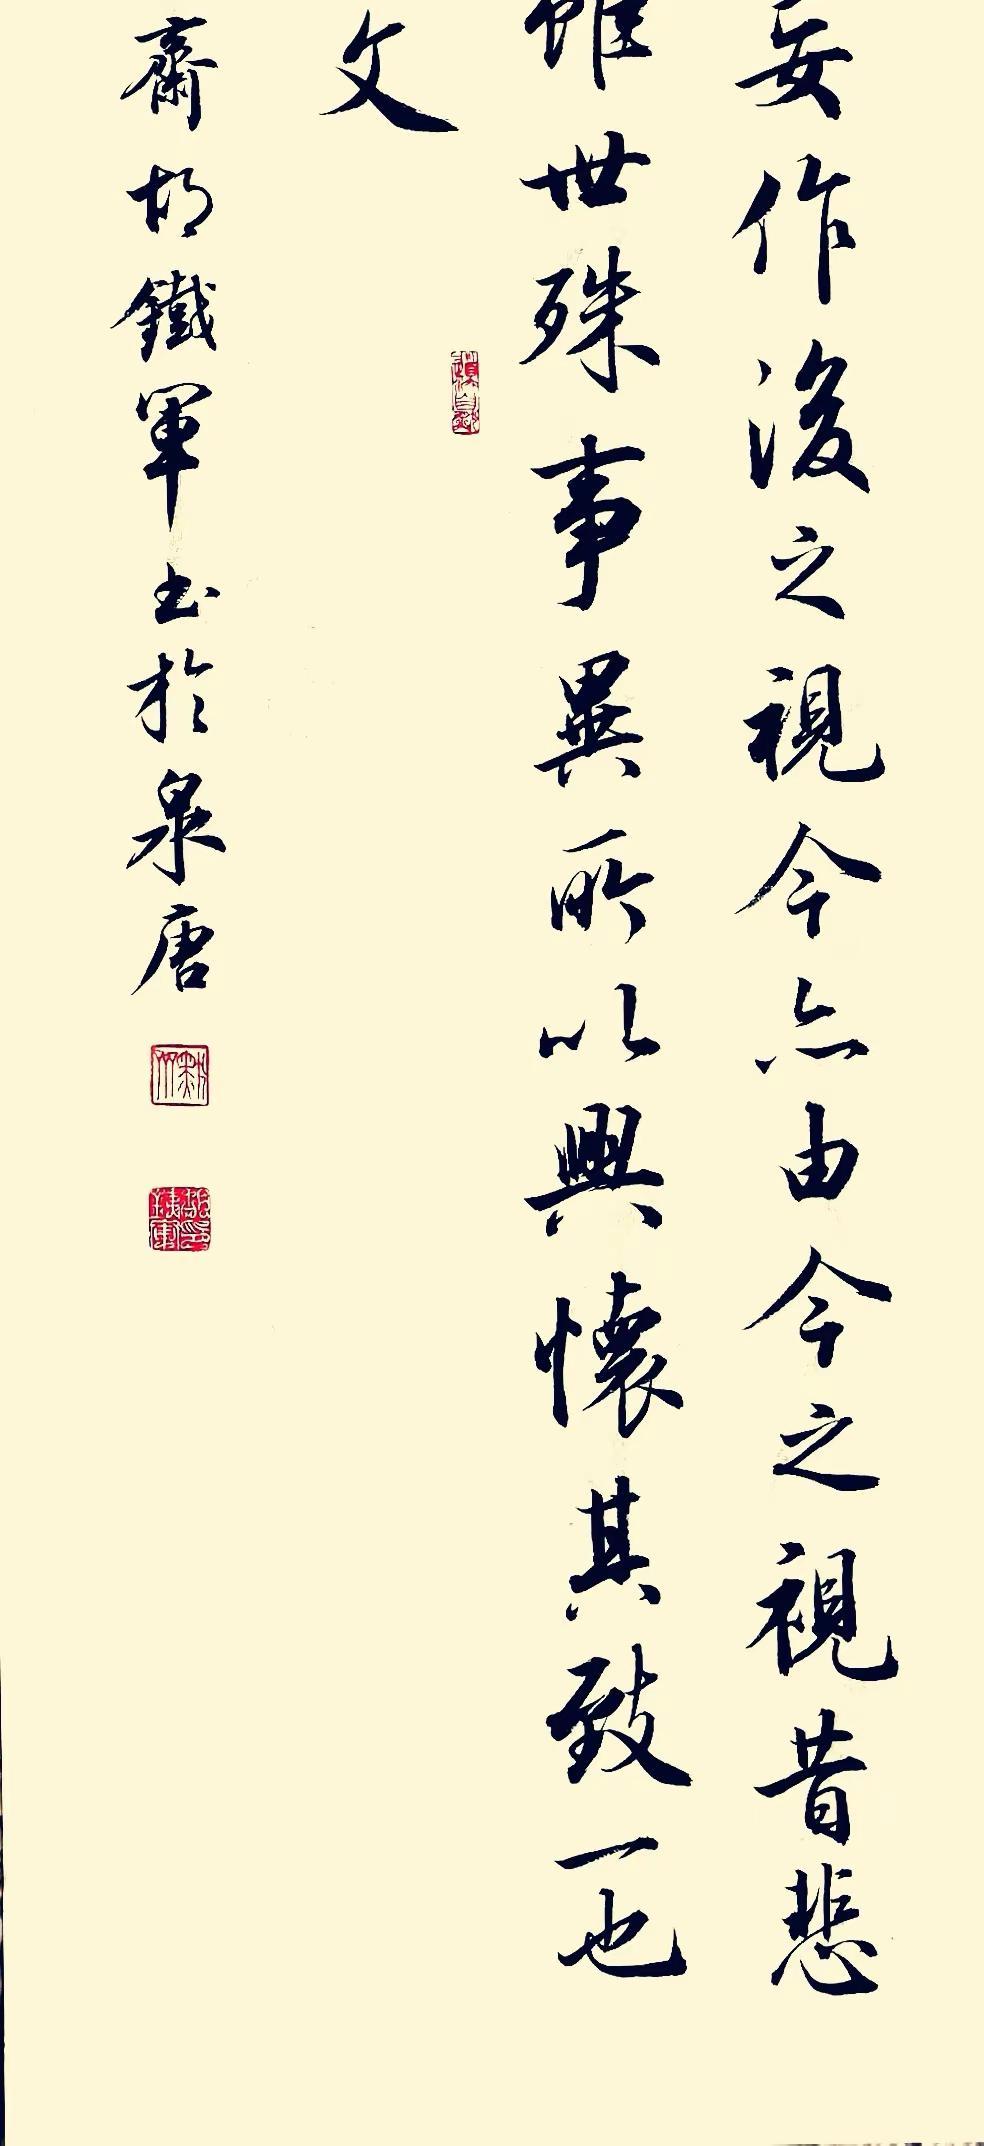 妄作後之視今亦由今之視昔悲
雖世殊事異所以興懷其致一也
文
齋胡鐵軍書於泉唐
胡鐵軍印